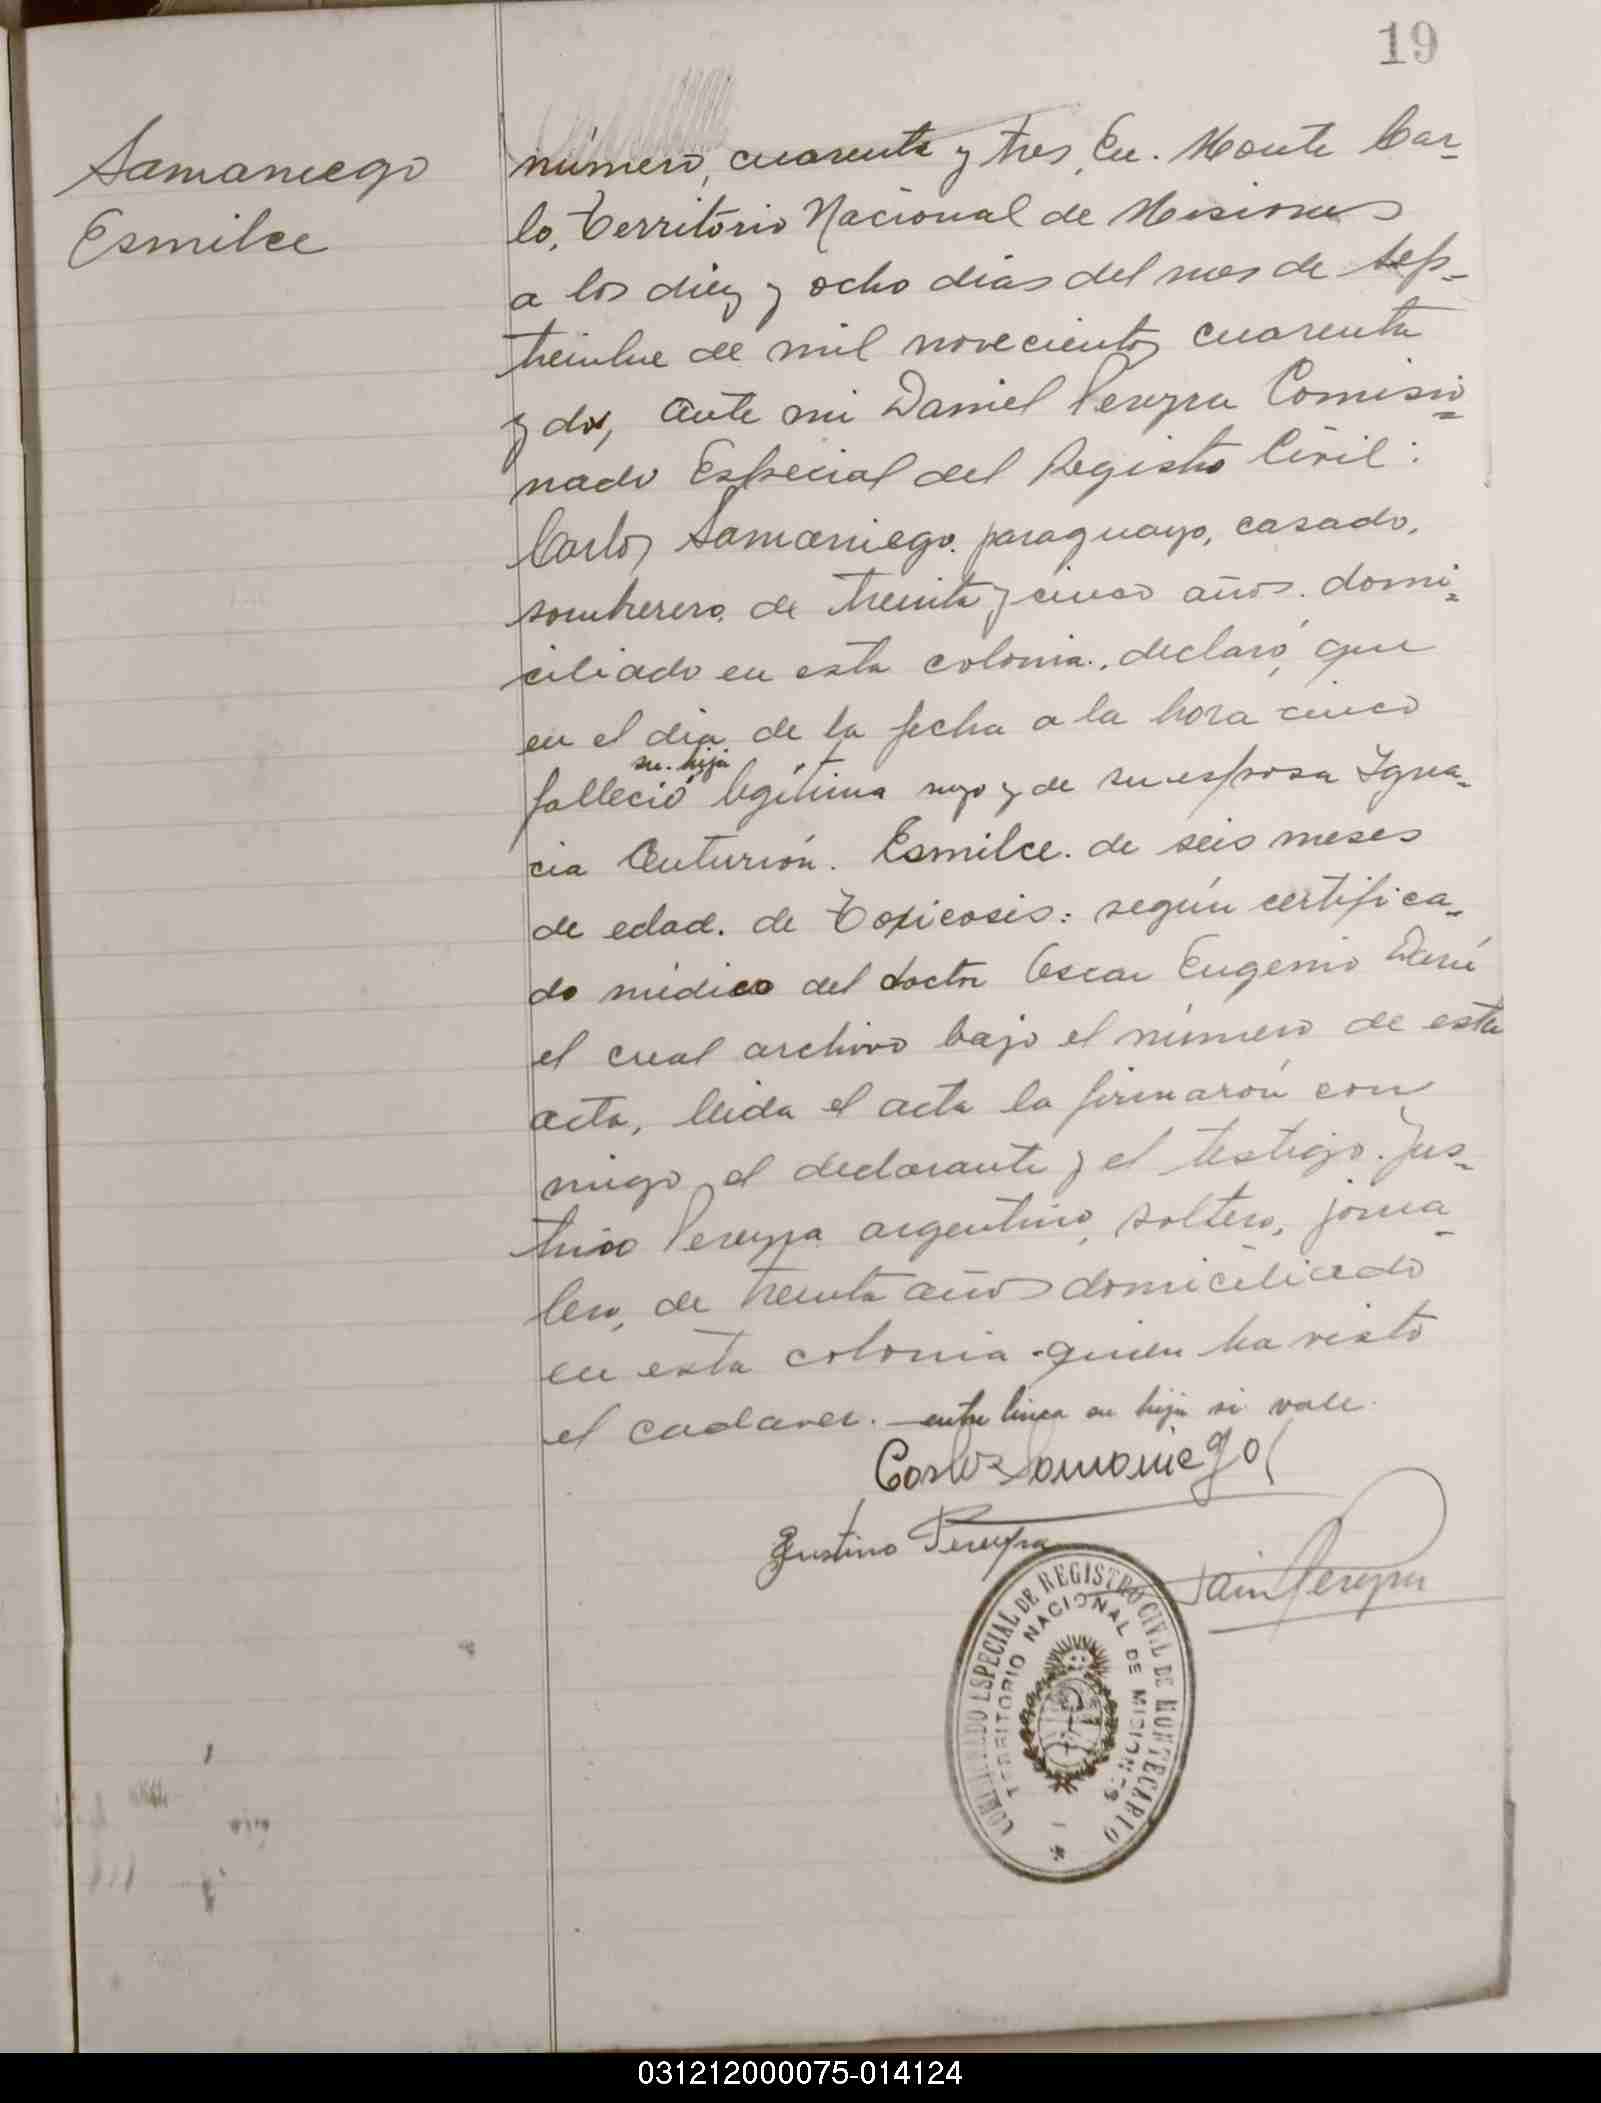 19
Samaniego
Esmilce
número, cuarenta y tres, En. Monte Car-
lo, Territorio Nacional de Misiones
a los diez y ocho dias del mes de sep-
tiembre de mil novecientos cuarenta
y dos, ante mi Daniel Pereyra Comisio=
nado Especial del Registro Civil:
Carlos Samaniego. paraguayo, casado,
sombrerero, de treinta y cinco años. domi=
ciliado en esta colonia., declaró, que
en el dia de la fecha a la hora cinco
su. hija
falleció legítima suya y de su esposa Igna-
cia Centurión. Esmilce. de seis meses
de edad. de Toxicosis: según certifica-
do médico del doctor Oscar Eugenio
el cual archivo bajo el número de esta
acta, leida el acta la firmarón con
migo el declarante y el testigo. Jus-
tino Pereyra argentino, soltero, jorna-
lero, de treinta años domiciliado
en esta colonia - quien ha visto
el cadaver. — entre linea su hija si vale.
Carlos Samaniego
Justino Pereyra
Dan Pereyra
COMISIONADO ESPECIAL DE REGISTRO CIVIL DE MONTECARLO
TERRITORIO NACIONAL DE MISIONES
031212000075-014124